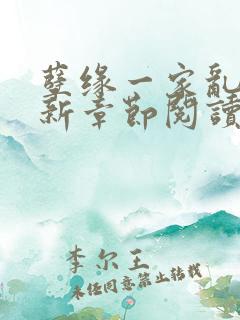 孽缘一家乱
新章节阅读
李尔王
未经同意禁止转载